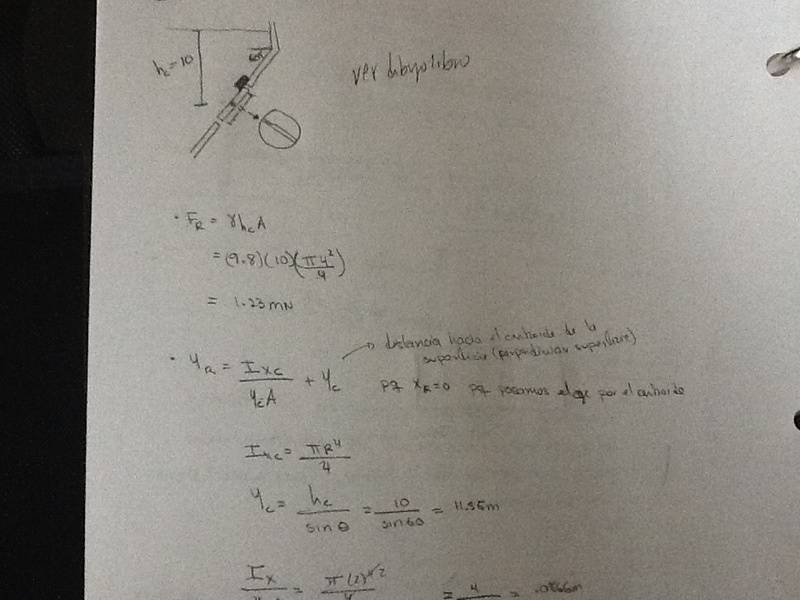 hc = 10
60°
ver dibujo libro
· FR = γhcA
= (9.8)(10)(π4²/4)
= 1.23 mN
· yR = Ixc/ycA + yc
→ distancia hacia el centroide de la
superficie (perpendicular superficie)
pq xR=0 pq pasamos el eje por el centroide
Ixc = πR⁴/4
yc = hc/sin θ = 10/sin60 = 11.55m
Ix = π(2)⁴ = 4 = .0866m